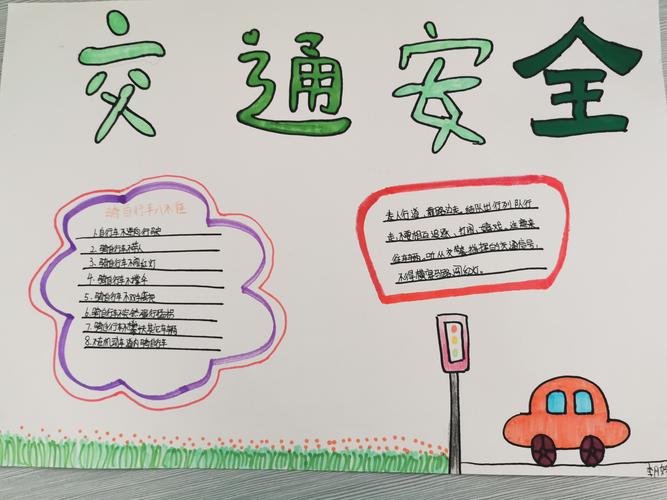 交通安全
骑自行车八不准
1.自行车不逆向行驶
2.骑自行车不带人
3.骑自行车不闯红灯
4.骑自行车不撑伞
5.骑自行车不双手离把
6.骑自行车不突然强行猛拐
7.骑自行车不攀扶其它车辆
8.不在机动车道内骑自行车
走人行道,靠路边走,结队出行列队行
走,不要相互追逐、打闹、嬉戏,注意来
往车辆。听从交警指挥的交通信号,
不得横穿马路闯红灯。